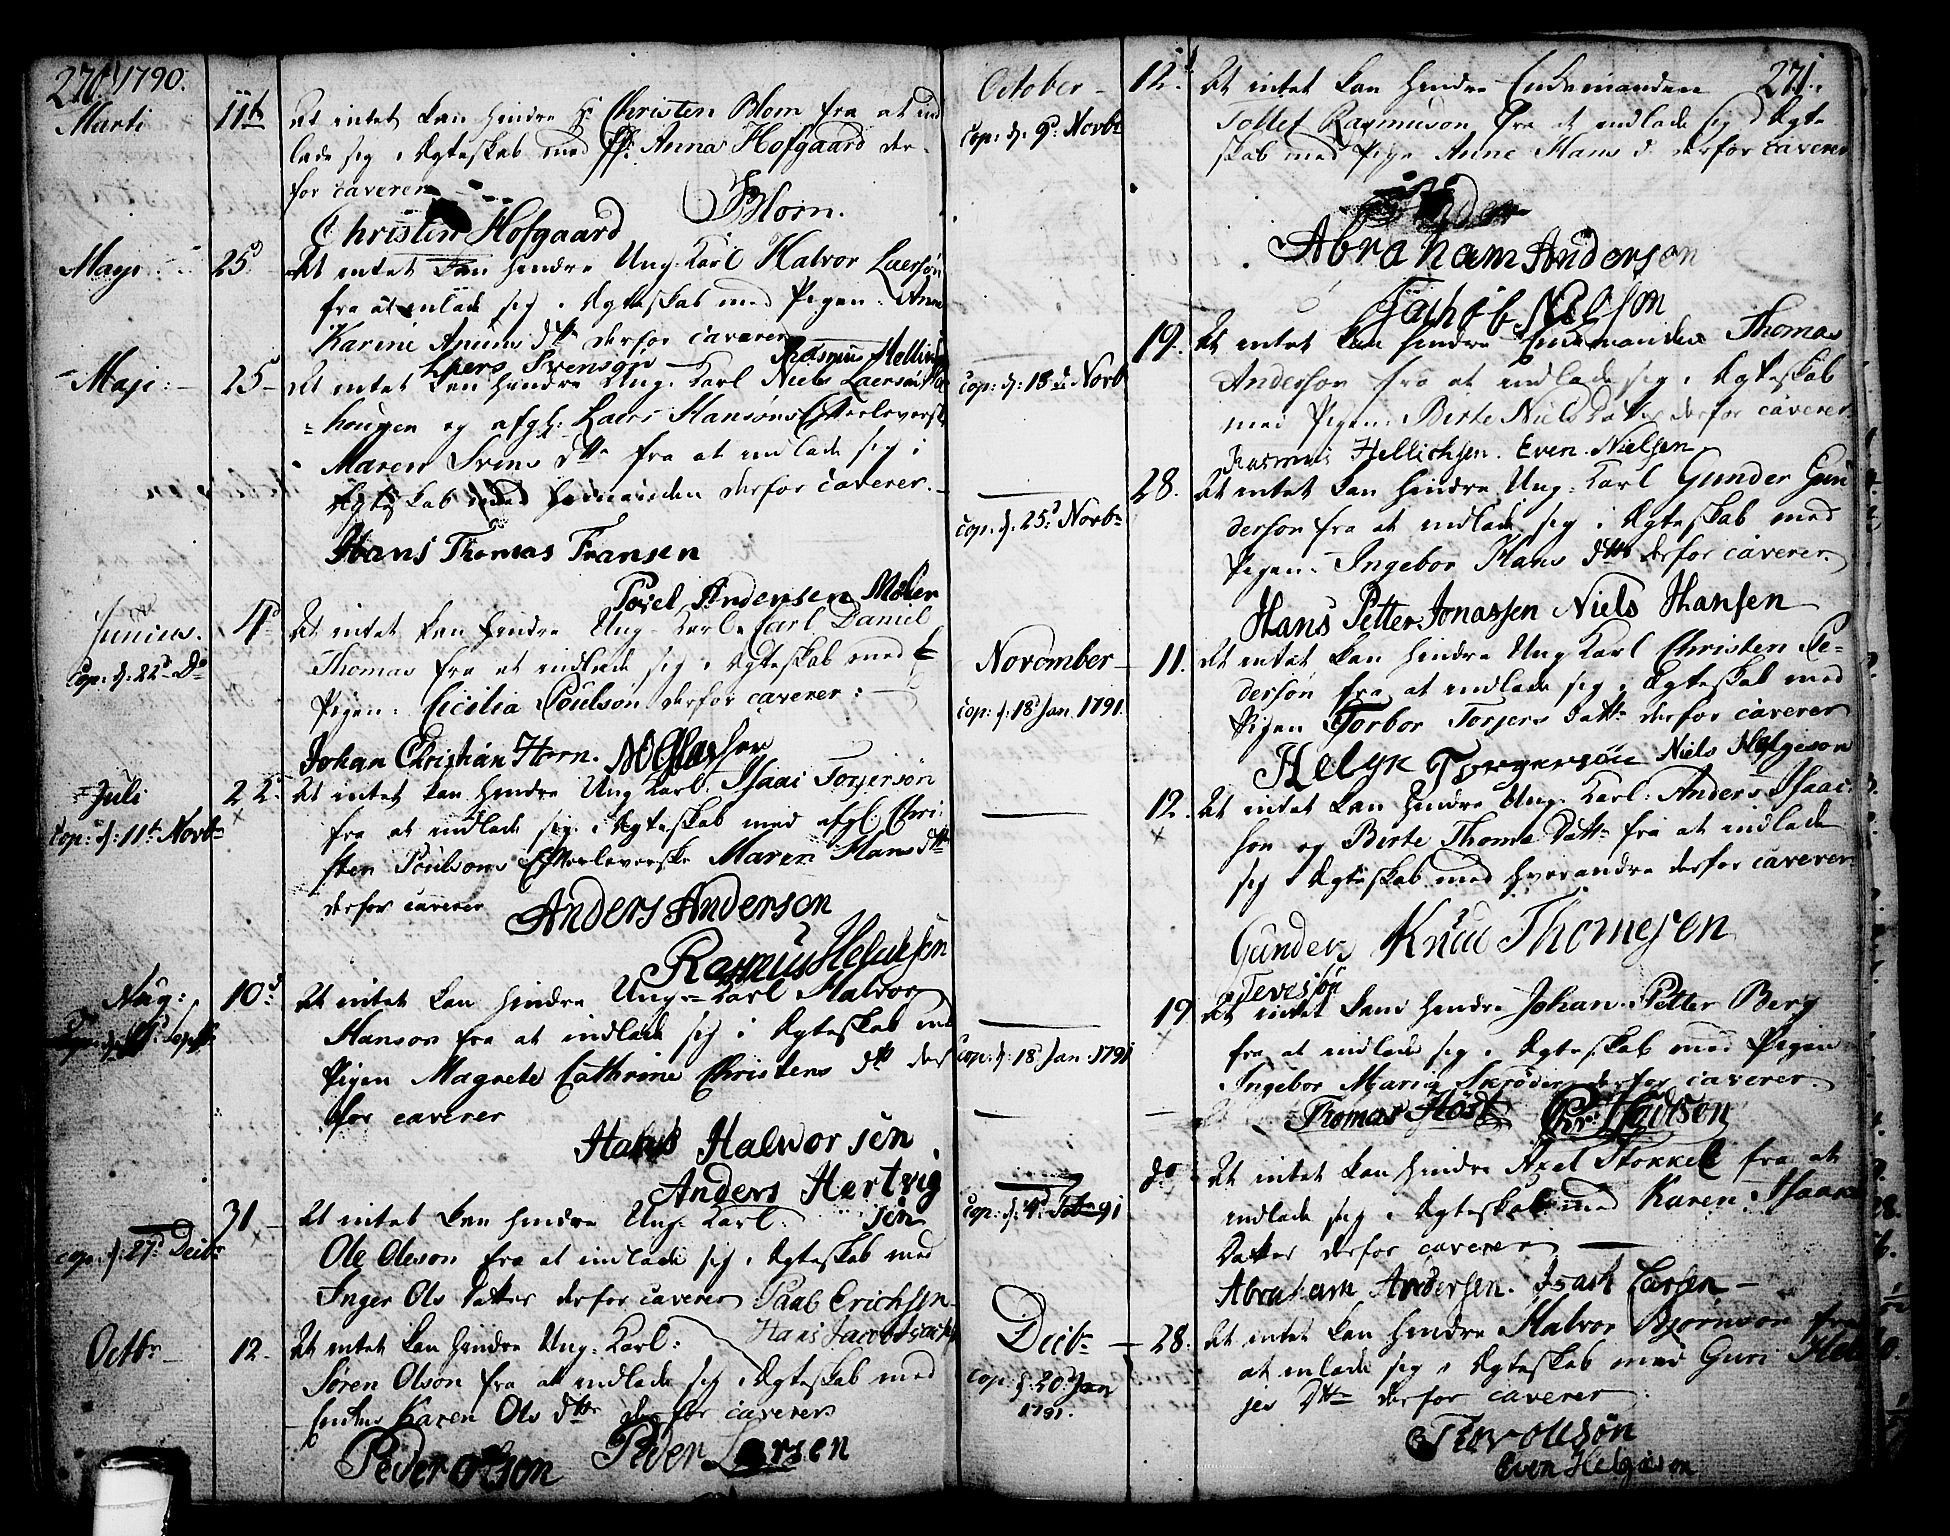 270 1790.
Marti
11te
At intet kan hindre Hr Christen Blom fra at ind
lade sig i Ægteskab med Jfr: Anna Hofgaard der-
for caverer
Christen Hofgaard
JBlom.
Maji
25
At intet kan hindre Ung Karl Halvor Laersøn
fra at inlade sig i Ægteskab med Pigen: Anne
Karine Anuns dtr derfor caverer
Laers Svensøn
Rasmus Hellichsen
Maji
25
At intet kan hindre Ung Karl Niels Laersøn
hougen og afg: Laers Hansøns Efterleverske
Maren Svens dtr fra at indlade sig i
Ægteskab med hinanden derfor caverer.
Hans Thomas Fransen
Povel Andersen Møller
Junius.
Cop: d: 22de Do
4de
At intet kan hindre Ung Karl Carl Daniel
Thomas fra at indlade sig i Ægteskab med
Pigen: Cicilia Poulson derfor caverer:
Johan Christian Horn.
Juli
Cop: d: 11te Novbr
22
At intet kan hindre Ung Karl: Isaac Torjersøn
fra at indlade sig i Ægteskab med afg: Chri
sten Poulsøns Efterleverske Maren Hans dtr
derfor caverer
Anders Anderson
Rasmus Helichsen
Aug:
10d
At intet kan hindre Ung Karl Halvor
Hanson fra at indlade sig i Ægteskab med
Pigen Magrete Cathrine Christens dtr der
for caverer
Hans Halworsen
Anders Hertvig
sen
31
cop: d: 27d Decbr
At intet kan hindre Ung Karl:
Ole Oleson fra at indlade sig i Ægteskab med
Inger Ols datter derfor caverer Paal Erichsen
Hans Jacob Isachs
Octbr
12.
At intet kan hindre Ung Karl:
Søren Olson fra at indlade sig i Ægteskab med
Karen Ols dtr derfor caverer
Peder Olson
Peder Larsen
271.
October
cop: d: 9d Novbr
12
At intet kan hindre Enkemanden
Tollef Rasmuson fra at indlade sig i Ægte
skab med Pige Anne Hans d. derfor caverer
Abraham Anderson
Jachob Nilson
cop: d: 18de Novb
19.
At intet kan hindre Enkemanden Thomas
Anderson fra at indlade sig i Ægteskab
med Pigen: Birte Niels Datter derfor caverer
Rasmus Hellichsen. Even Nielsen
cop: d: 25d Novbr
28.
At intet kan hindre Ung Karl Gunder Gun
derson fra at indlade sig i Ægteskab med
Pigen: Ingebor Hans dtr derfor caverer.
Hans Petter Jonassen Niels Hansen
November
cop: d: 18d Jan 1791.
11.
At intet kan hindre Ung Karl Christen Pe-
dersøn fra at indlade sig i Ægteskab med
Pigen Torbor Torjers Dattr derfor caverer
Helge Torgersøn Niels Helgeson
12.
At intet kan hindre Ung Karl: Anders Isaac
son og Birte Thome Dattr fra at indlade
sig i Ægteskab med hverandre derfor caverer
Gunder
Tevesøn
Knud Thomesen
cop: d: 18 Jan: 1791
19
At intet kand hindre Johan Petter Berg
fra at indlade sig i Ægteskab med Pigen
Ingebor Maria Skrøder derfor caverer.
Thomas Høst
cop: d: 4d Febr 91
do
At intet kan hindre Axel Stokkel fra at
indlade sig i Ægteskab med Karen Isaacs
Datter derfor caverer
Abraham Andersen. Isach Larsen
Decbr
cop: d: 20d Jan
1791.
28.
At intet kan hindre Halvor Bjørnson fra
at inlade sig i Ægteskab med Guri Hel
jes Dtr derfor caverer
Tor Ollsøn
Even Helgeson